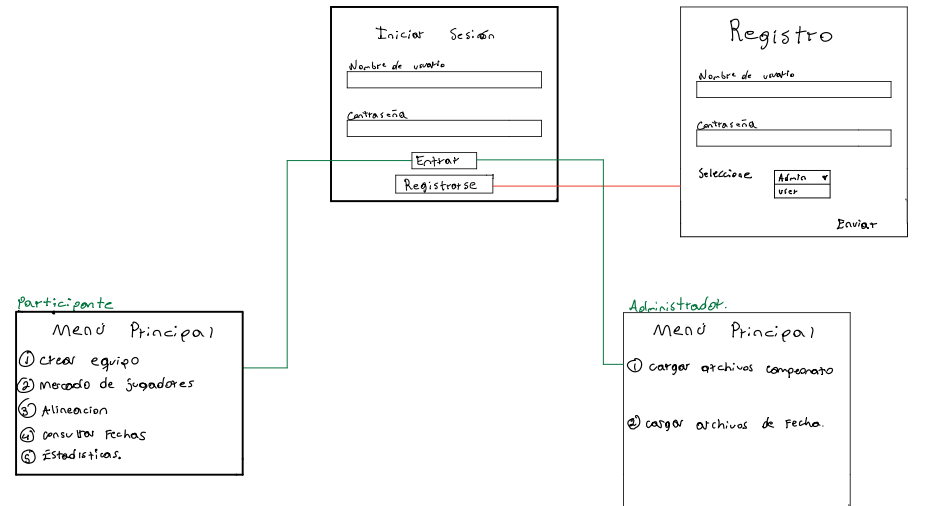 Iniciar Sesión
Nombre de usuario
Contraseña
Entrar
Registrarse
Registro
Nombre de usuario
Contraseña
Seleccione
Admin
user
Enviar
Participante
Menú Principal
① Crear equipo
② Mercado de jugadores
③ Alineacion
④ Consultar Fechas
⑤ Estadisticas.
Administrador.
Menú Principal
① cargar archivos campeonato
② cargar archivos de Fecha.